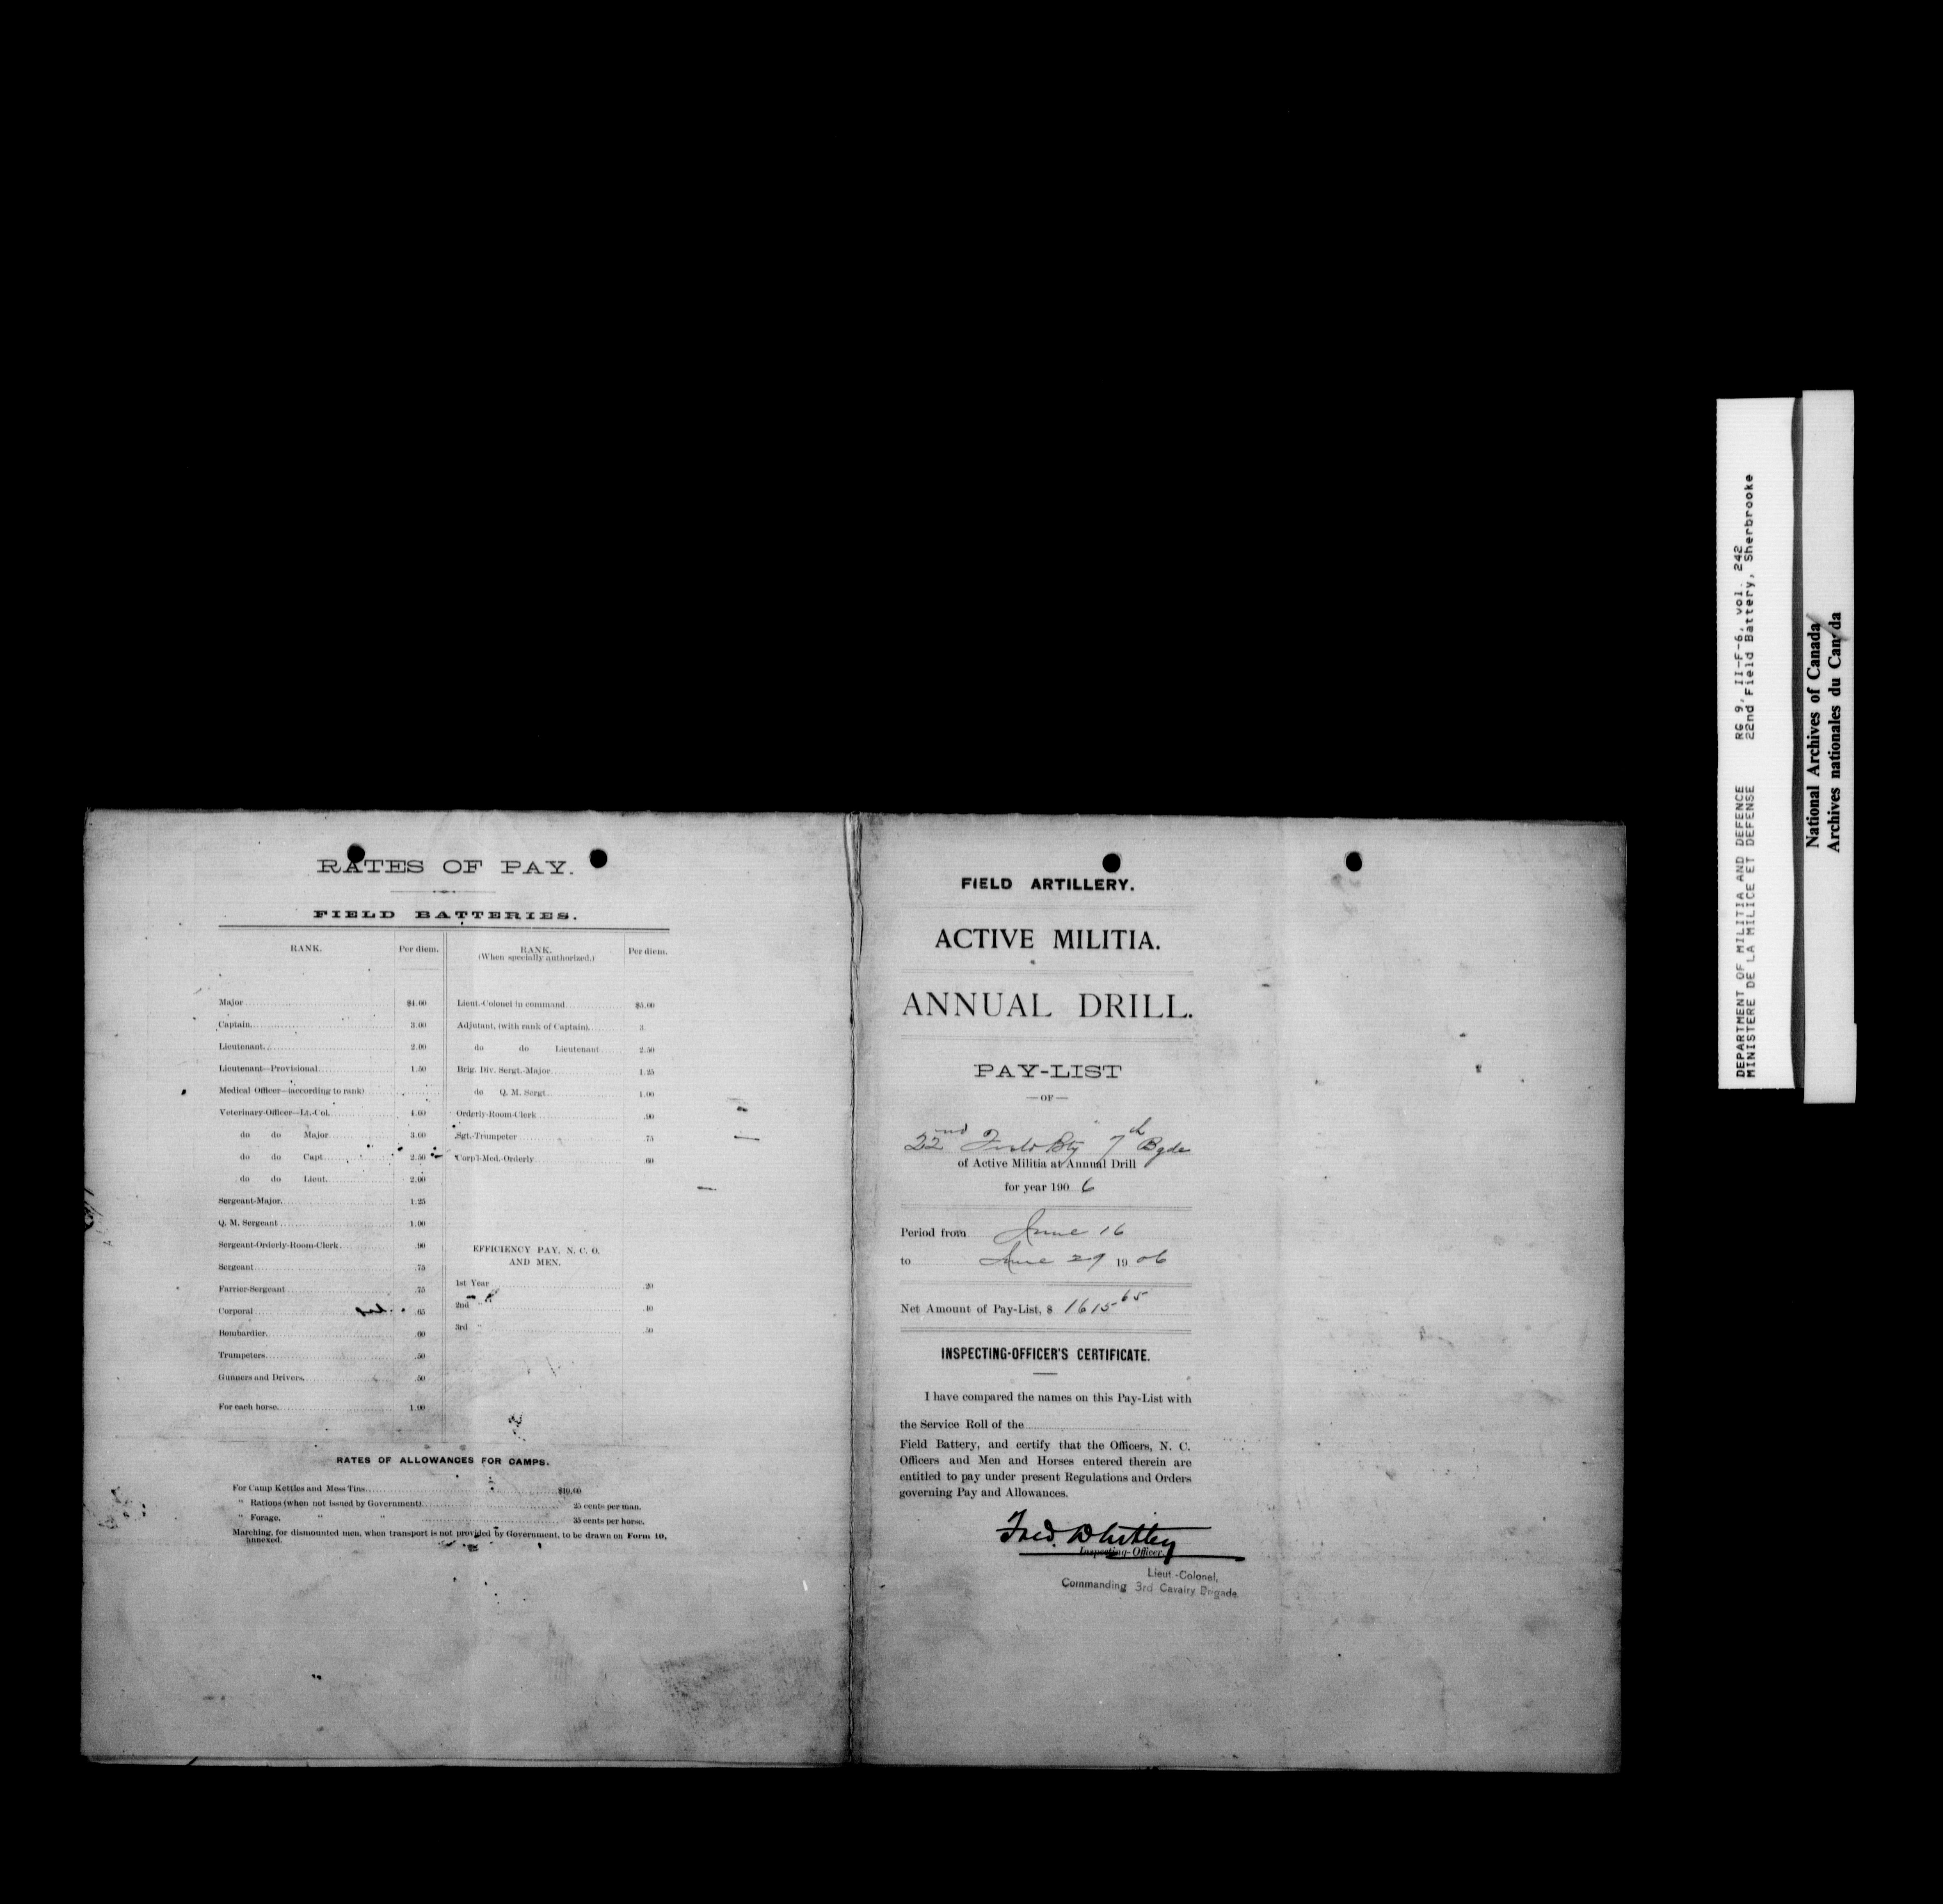 RATES OF PAY.
FIELD BATTERIES.
RANK. Per diem.
Major $4.00
Captain 3.00
Lieutenant 2.00
Lieutenant—Provisional 1.50
Medical Officer—(according to rank)
Veterinary-Officer—Lt.-Col. 4.00
do do Major 3.00
do do Capt. 2.50
do do Lieut. 2.00
Sergeant-Major. 1.25
Q. M. Sergeant 1.00
Sergeant-Orderly-Room-Clerk. .90
Sergeant .75
Farrier-Sergeant .75
Corporal .65
Bombardier. .60
Trumpeters. .50
Gunners and Drivers. .50
For each horse. 1.00
RANK. Per diem.
(When specially authorized.)
Lieut.-Colonel in command $5.00
Adjutant, (with rank of Captain) 3.
do do Lieutenant 2.50
Brig. Div. Sergt.-Major 1.25
do Q. M. Sergt. 1.00
Orderly-Room-Clerk .90
Sgt.-Trumpeter .75
Corp'l-Med.-Orderly 60
EFFICIENCY PAY, N. C. O.
AND MEN.
1st Year .20
2nd " .40
3rd " .50
RATES OF ALLOWANCES FOR CAMPS.
For Camp Kettles and Mess Tins $10.00
" Rations (when not issued by Government) 25 cents per man.
" Forage, " " 35 cents per horse.
Marching, for dismounted men, when transport is not provided by Government, to be drawn on Form 10,
annexed.
FIELD ARTILLERY.
ACTIVE MILITIA.
ANNUAL DRILL.
PAY-LIST
—OF—
22nd Field Bty 7th Bgde
of Active Militia at Annual Drill
for year 190 6
Period from June 16
to June 29 19 06
Net Amount of Pay-List, $ 1615 65
INSPECTING-OFFICER'S CERTIFICATE.
I have compared the names on this Pay-List with
the Service Roll of the
Field Battery, and certify that the Officers, N. C.
Officers and Men and Horses entered therein are
entitled to pay under present Regulations and Orders
governing Pay and Allowances.
Fred. Whitley
Inspecting-Officer.
Lieut.-Colonel,
Commanding 3rd Cavalry Brigade
DEPARTMENT OF MILITIA AND DEFENCE RG 9, II-F-6, vol. 242
MINISTERE DE LA MILICE ET DEFENSE 22nd Field Battery, Sherbrooke
National Archives of Canada
Archives nationales du Canada